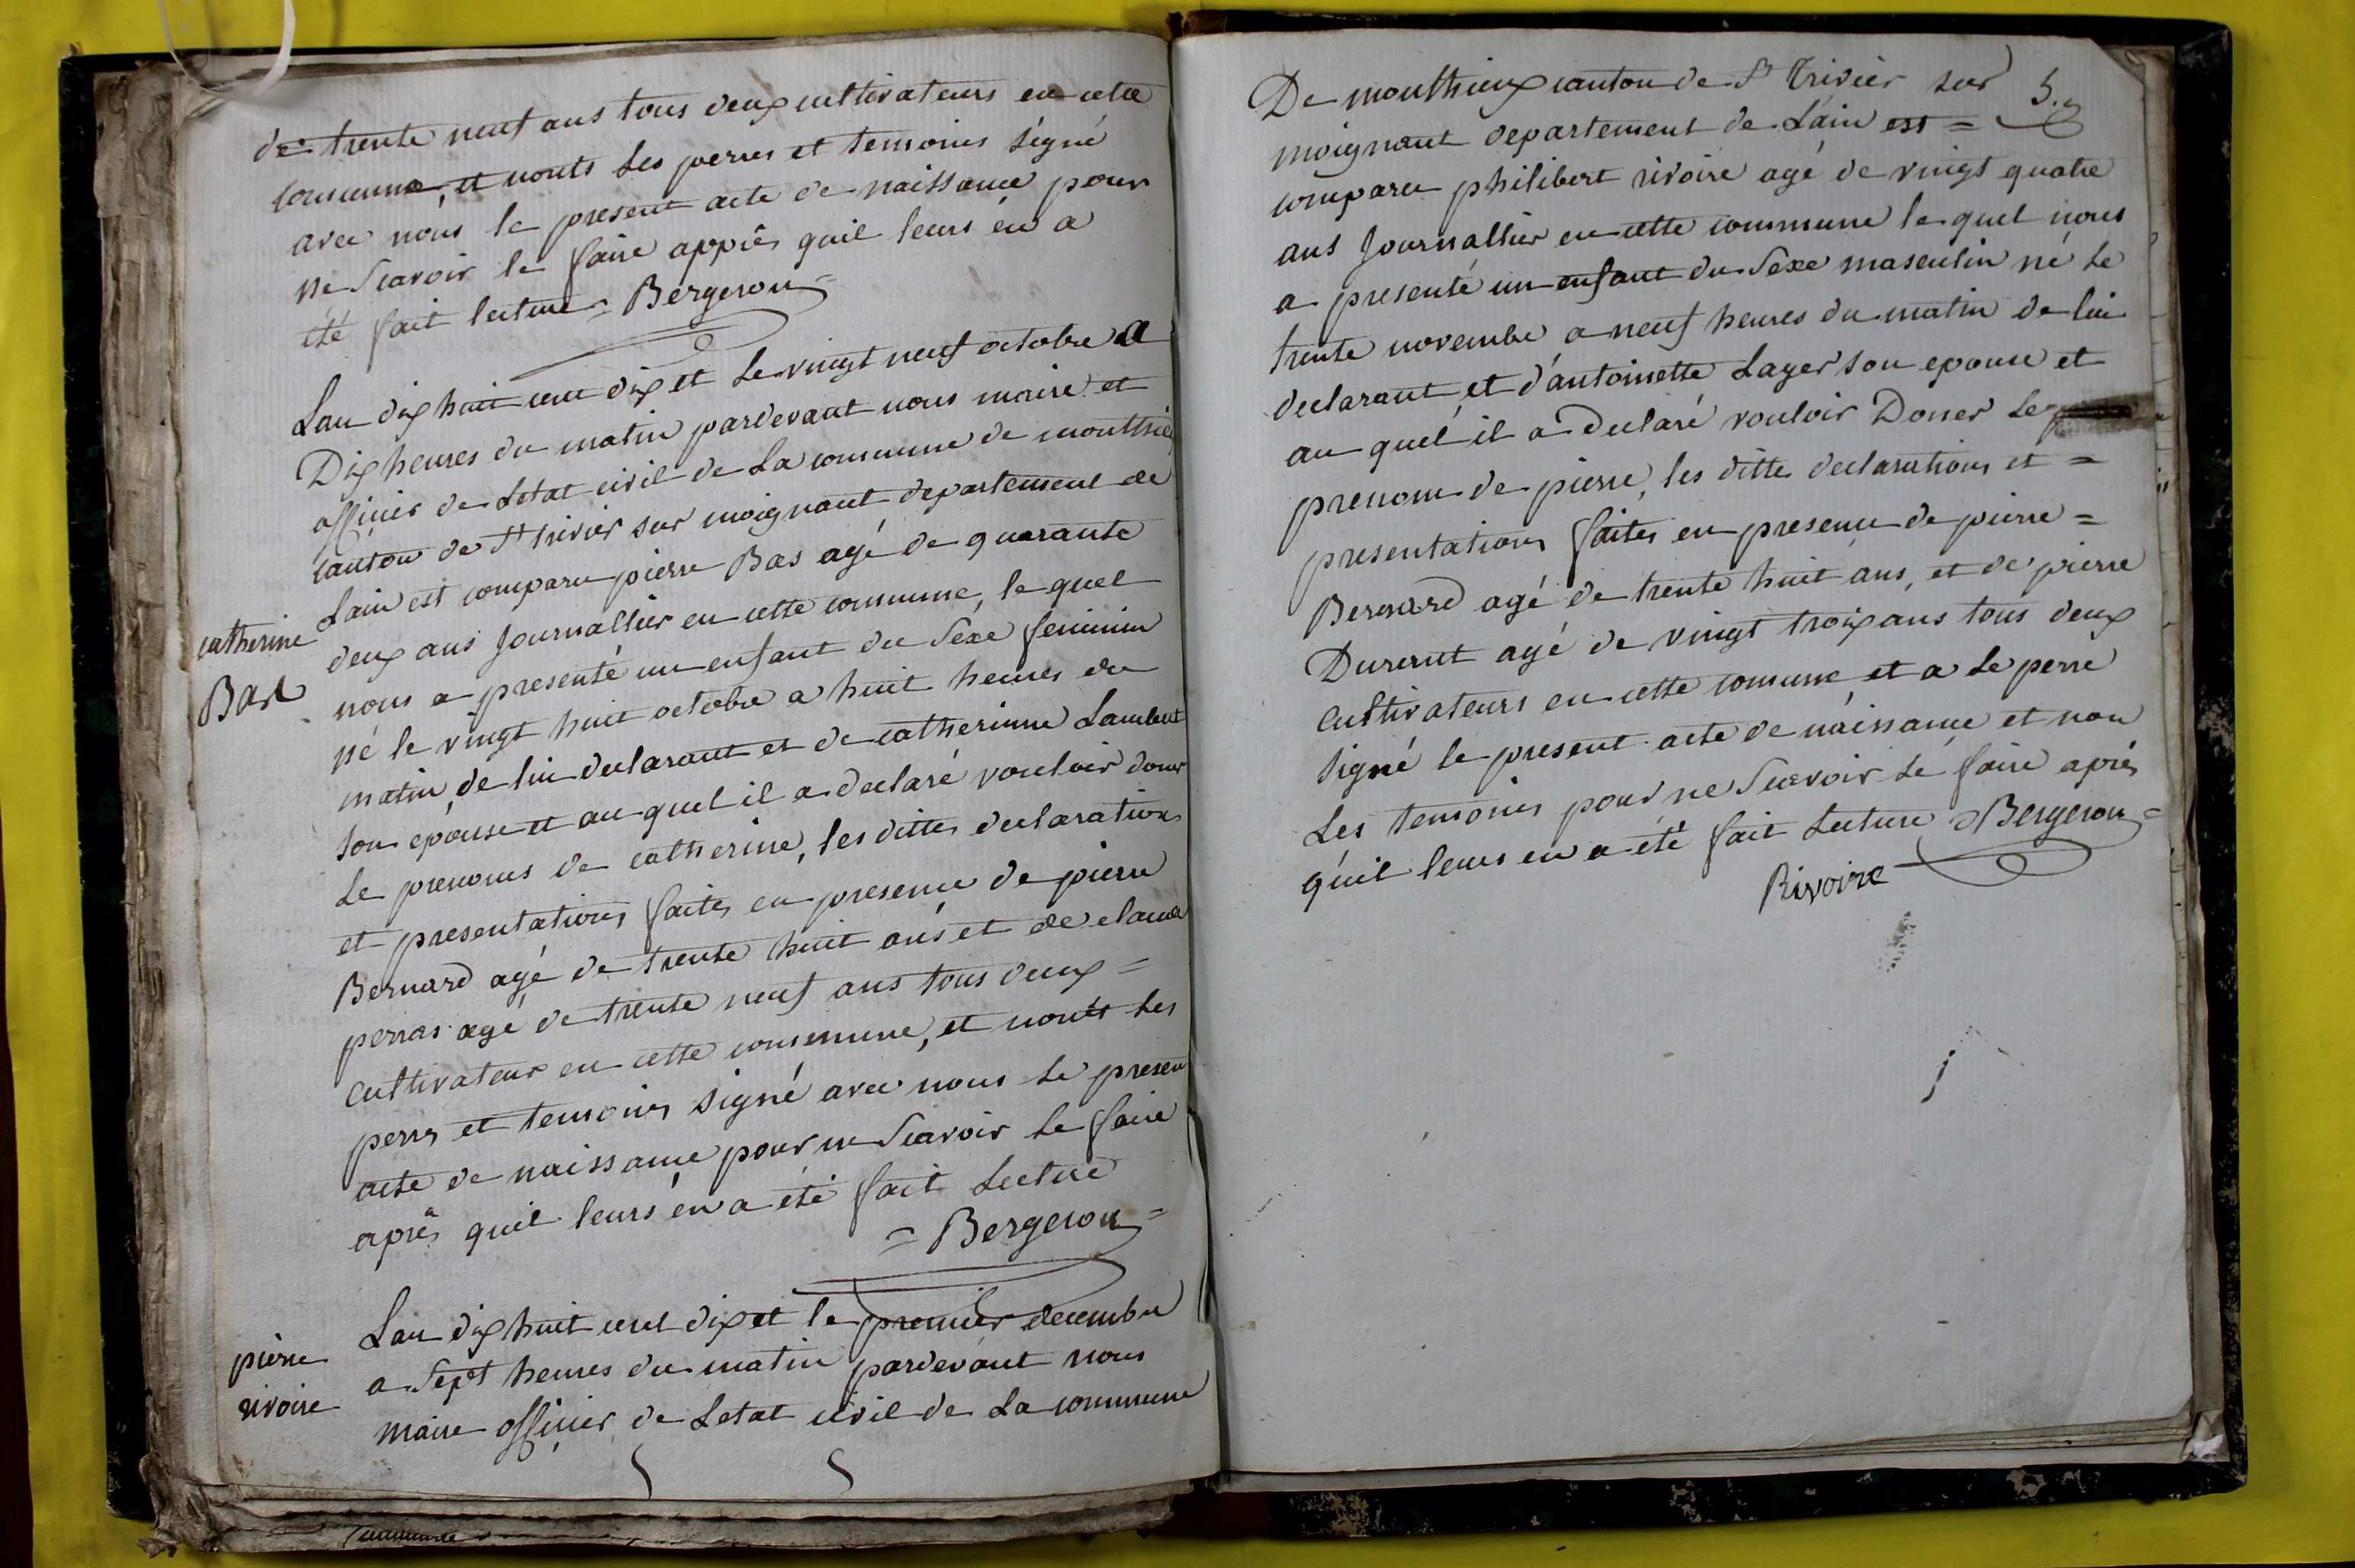 de trente neuf ans tous deux cultivateurs en cette
commune, et nonts les perres et temoins signé
avec nous le present acte de naissance pour
ne Scavoir le faire apprès quil leurs en a
été fait lecture = Bergeron =
Lan dix huit cent dix et le vingt neuf octobre a
Dix heures du matin pardevant nous maire et
officier de Letat civil de La commune de monthieu
canton de St trivier sur moignant departement de
Lain est comparu pierre Bas agé de quarante
catherine
Bas
deux ans Journallier en cette commune, le quel
nous a presenté un enfant du Sexe feminin
né le vingt huit octobre a huit heures du
matin, de lui declarant et de catherinne Lambert
son epouse et au quel il a declaré vouloir doner
Le prenoms de catherine, les dittes declarations
et presentations faites en presence de pierre
Bernard agé de trente huit ans et de claude
perras agé de trente neuf ans tous deux =
Cultivateur en cette commune, et nonts Les
perres et temoins signé avec nous Le present
acte de naissance pour ne Scavoir Le faire
après quil leurs en a été fait Lecture
= Bergeron =
pierre
rivoire
Lan dix huit cent dix et le premier decembre
a Sept heures du matin pardevant nous
maire officier de Letat civil de La commune
5.
De monthieux canton de St Trivier sur
moignant departement de Lain est =
comparu philibert rivoire agé de vingt quatre
ans Journallier en cette commune le quel nous
a presenté un enfant du Sexe masculin né Le
trente novembre a neuf heures du matin de lui
declarant, et d'antoinette Layer son epouse et
au quel il a Declaré vouloir Doner Le
prenom de pierre, les ditte declarations et =
presentations faites en presence de pierre =
Bernard agé de trente huit ans, et de pierre
Durerut agé de vingt troix ans tous deux
Cultivateurs en cette comune, et a Le perre
signé le present acte de naissance et non
Les temoins pour ne Scavoir Le faire après
quil leurs en a été fait Lecture = Bergeron =
Rivoire
commune